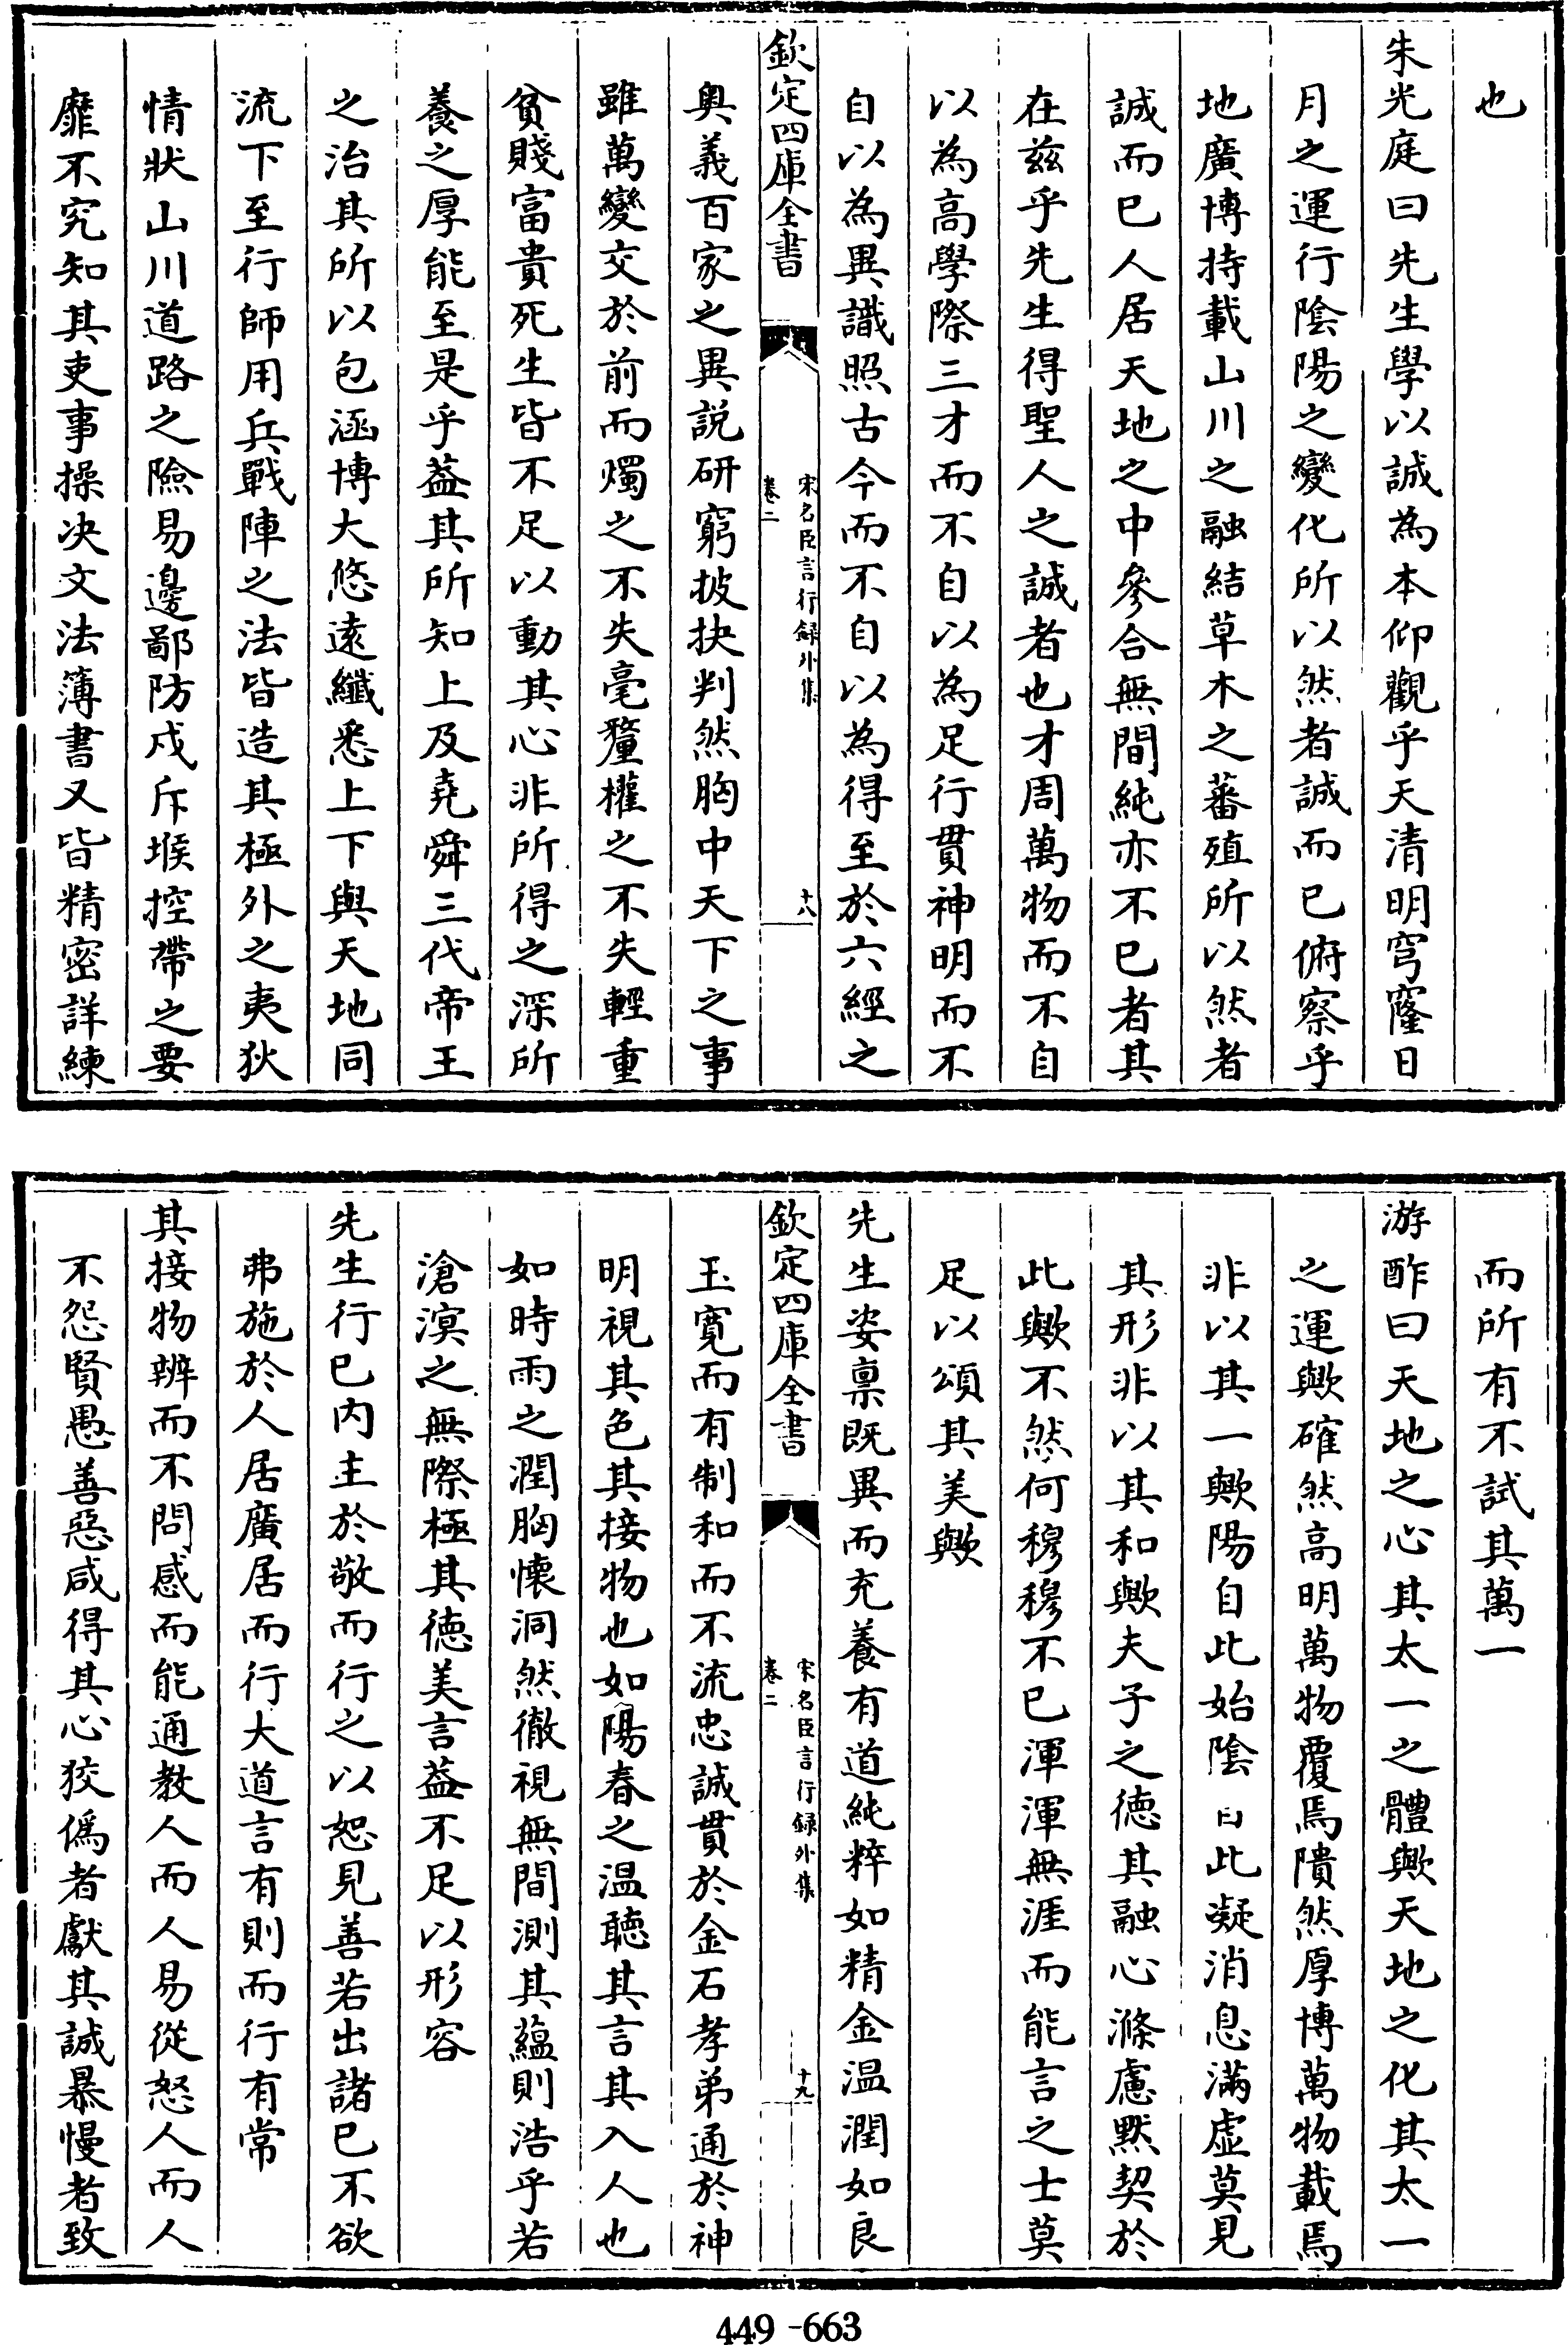 也
朱光庭曰先生學以誠為本仰觀乎天清明穹窿日
月之運行陰陽之變化所以然者誠而已俯察乎
地廣博持載山川之融結草木之蕃殖所以然者
誠而已人居天地之中參合無間純亦不已者其
在兹乎先生得聖人之誠者也才周萬物而不自
以為高學際三才而不自以為足行貫神明而不
自以為異識照古今而不自以為得至於六經之
欽定四庫全書
宋名臣言行録外集
卷二
十八
奥義百家之異説研窮披抉判然胸中天下之事
雖萬變交於前而燭之不失毫釐權之不失輕重
貧賤富貴死生皆不足以動其心非所得之深所
養之厚能至是乎葢其所知上及堯舜三代帝王
之治其所以包涵博大悠遠纖悉上下與天地同
流下至行師用兵戰陣之法皆造其極外之夷狄
情狀山川道路之險易邊鄙防戍斥堠控帶之要
靡不究知其吏事操决文法簿書又皆精密詳練
而所有不試其萬一
游酢曰天地之心其太一之體歟天地之化其太一
之運歟確然高明萬物覆焉隤然厚博萬物載焉
非以其一歟陽自此始陰自此凝消息滿虚莫見
其形非以其和歟夫子之德其融心滌慮黙契於
此歟不然何穆穆不已渾渾無涯而能言之士莫
足以頌其美歟
先生姿禀既異而充養有道純粹如精金温潤如良
欽定四庫全書
宋名臣言行録外集
卷二
十九
玉寛而有制和而不流忠誠貫於金石孝弟通於神
明視其色其接物也如陽春之温聽其言其入人也
如時雨之潤胸懷洞然徹視無間測其藴則浩乎若
滄溟之無際極其德美言葢不足以形容
先生行已内主於敬而行之以恕見善若出諸已不欲
弗施於人居廣居而行大道言有則而行有常
其接物辨而不問感而能通教人而人易從怒人而人
不怨賢愚善惡咸得其心狡偽者獻其誠暴慢者致
449-663